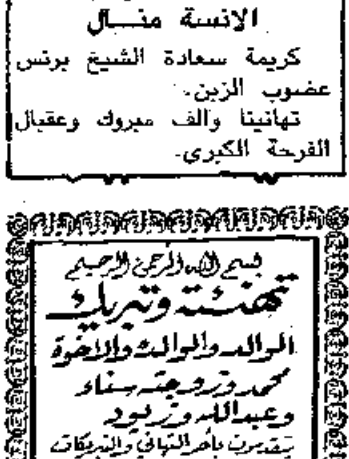 الانسة منـــال
كريمة سعادة الشيخ برنس
عضوب الزبن.
تهانينا والف مبروك وعقبال
الفرحة الكبرى.
بسم الله الرحمن الرحيم
تهنئة وتبريك
الوالد والوالدة والاخوة
محمد وزوجته سناء
وعبدالله وزيود
يتقدمون بأحر التهاني والتبريكات